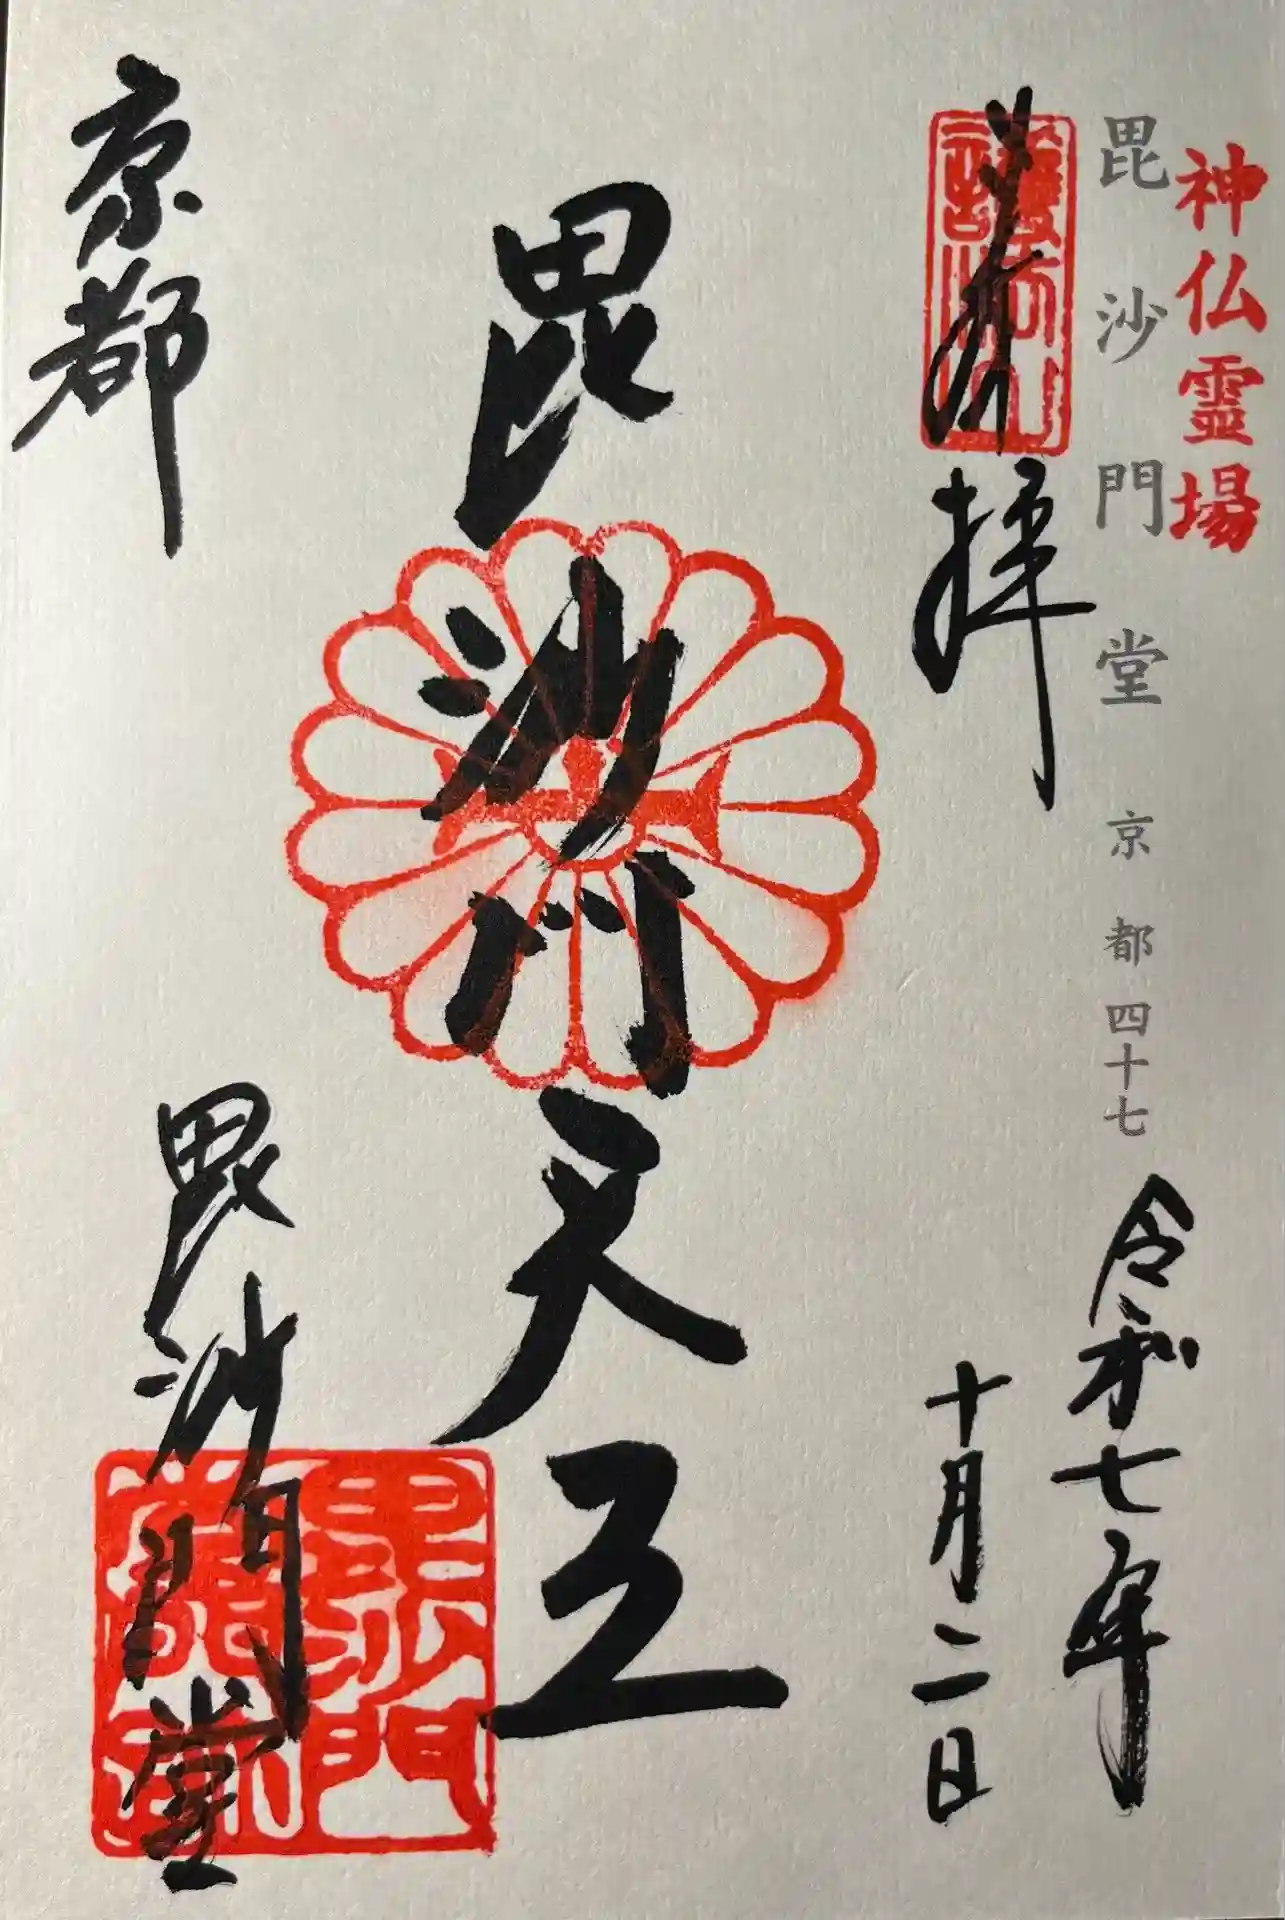 神仏霊場
毘沙門堂 京都四十七
令和七年
十月二日
奉拝
護法山
毘沙門天王
京都
毘沙門堂